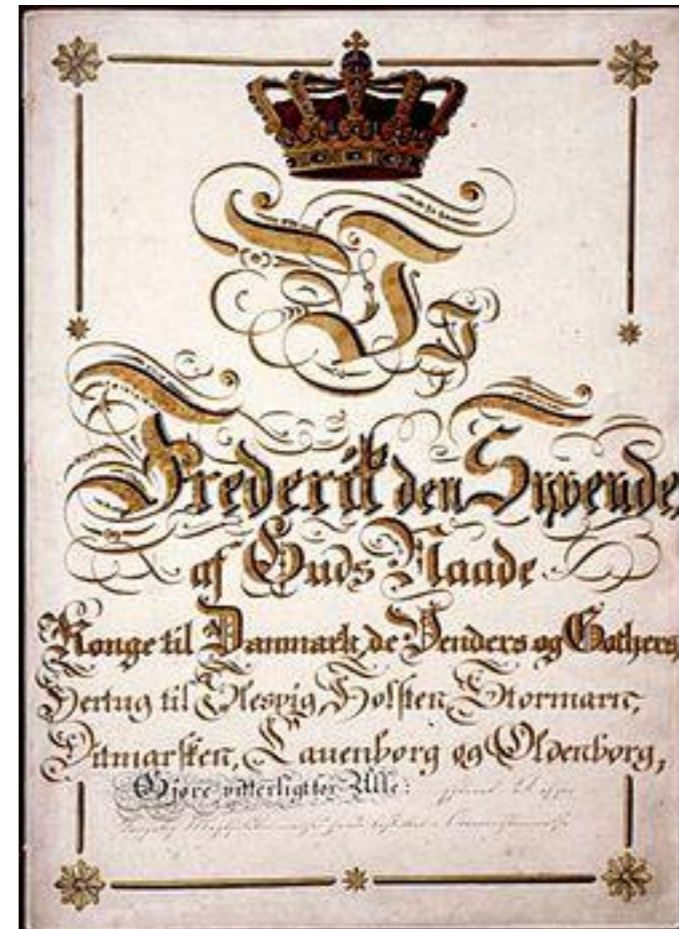 F
Frederik den Syvende,
af Guds Naade
Konge til Danmark, de Venders og Gothers,
Hertug til Slesvig, Holsten, Stormarn,
Ditmarsken, Lauenborg og Oldenborg,
Gjøre vitterligt for Alle: